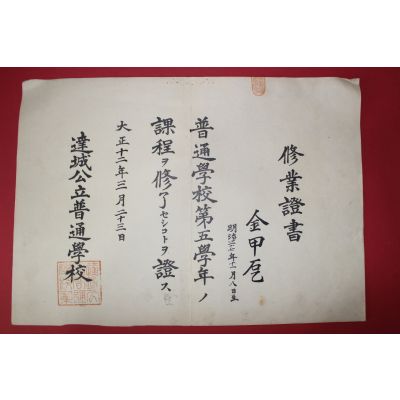 修業證書
金甲
明治三十七年十一月八日生
普通學校第五學年ノ
課程ヲ修了セシコトヲ證ス
大正十二年三月二十三日
達城公立普通學校